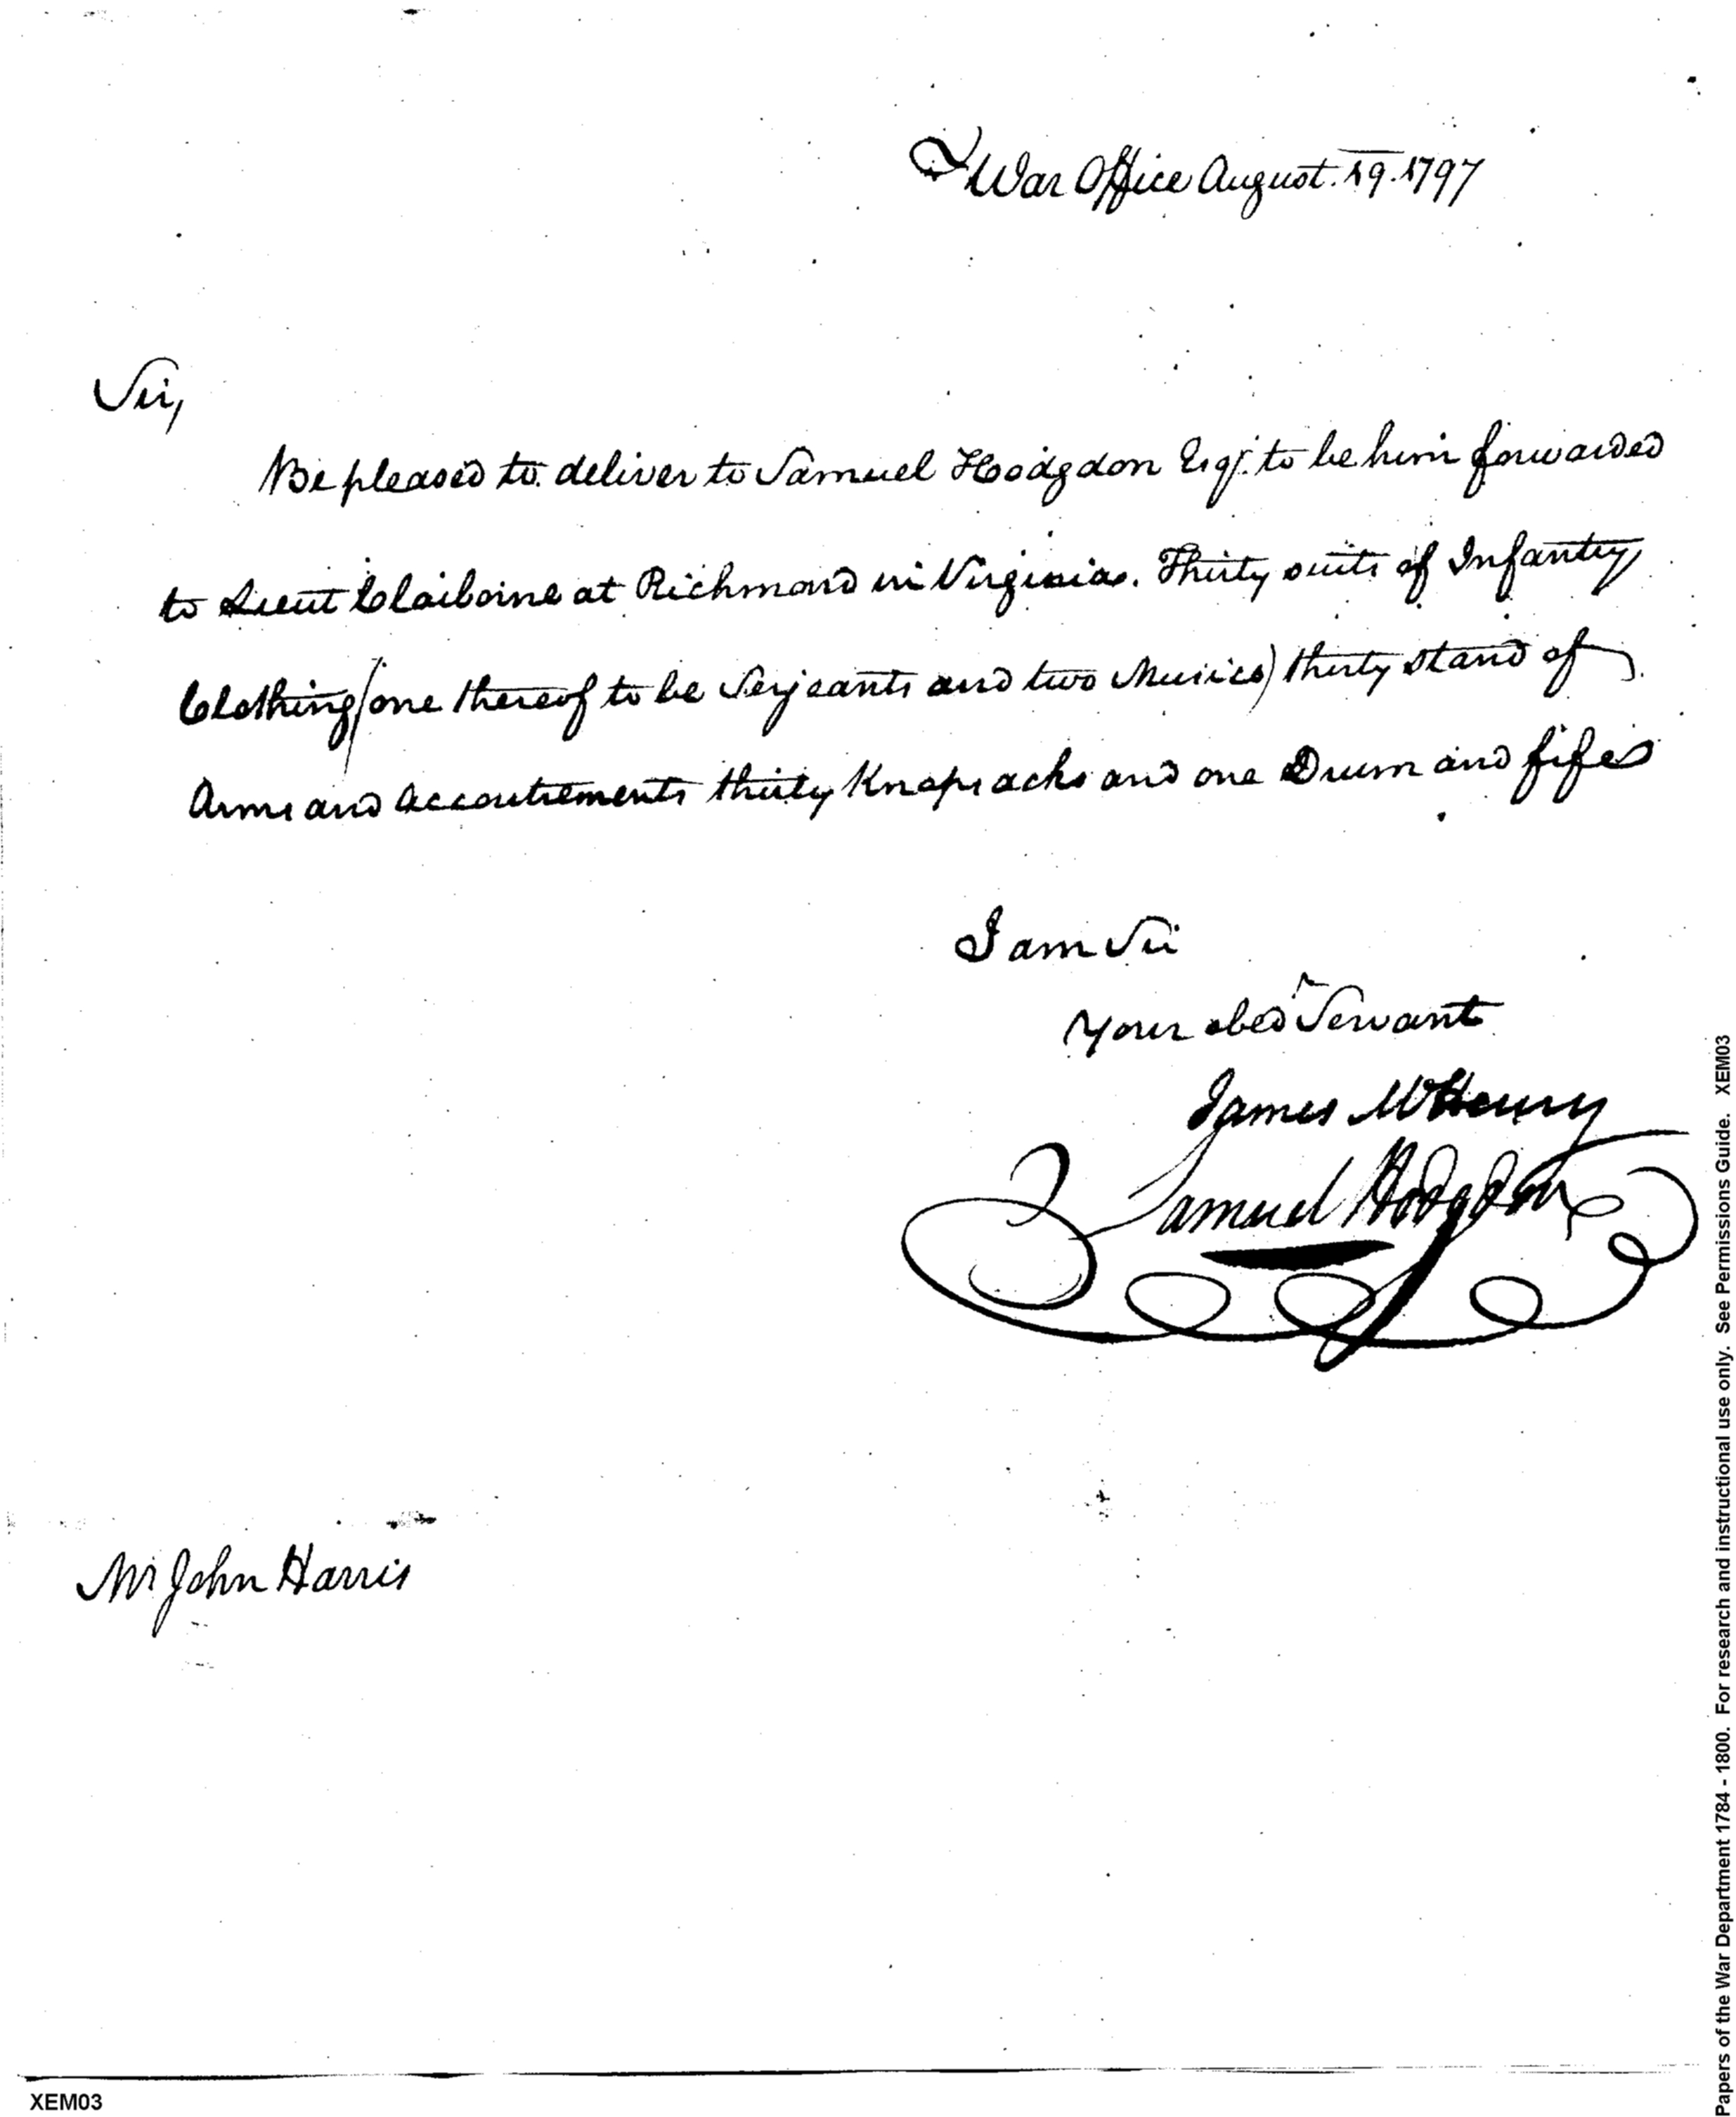 War Office August. 19. 1797
Sir,
Be pleased to deliver to Samuel Hodgdon Esqr. to be him forwarded
to Lieut Claiborne at Richmond in Virginia. Thirty suits of Infantry
Clothing (one thereof to be Serjeants and two Musics) thirty stand of
Arms and Accoutrements thirty Knapsacks and one Drum and fife
I am Sir
Your obed Servant
James McHenry
Samuel Hodgdon
Mr John Harris
XEM03
Papers of the War Department 1784 - 1800. For research and instructional use only. See Permissions Guide. XEM03